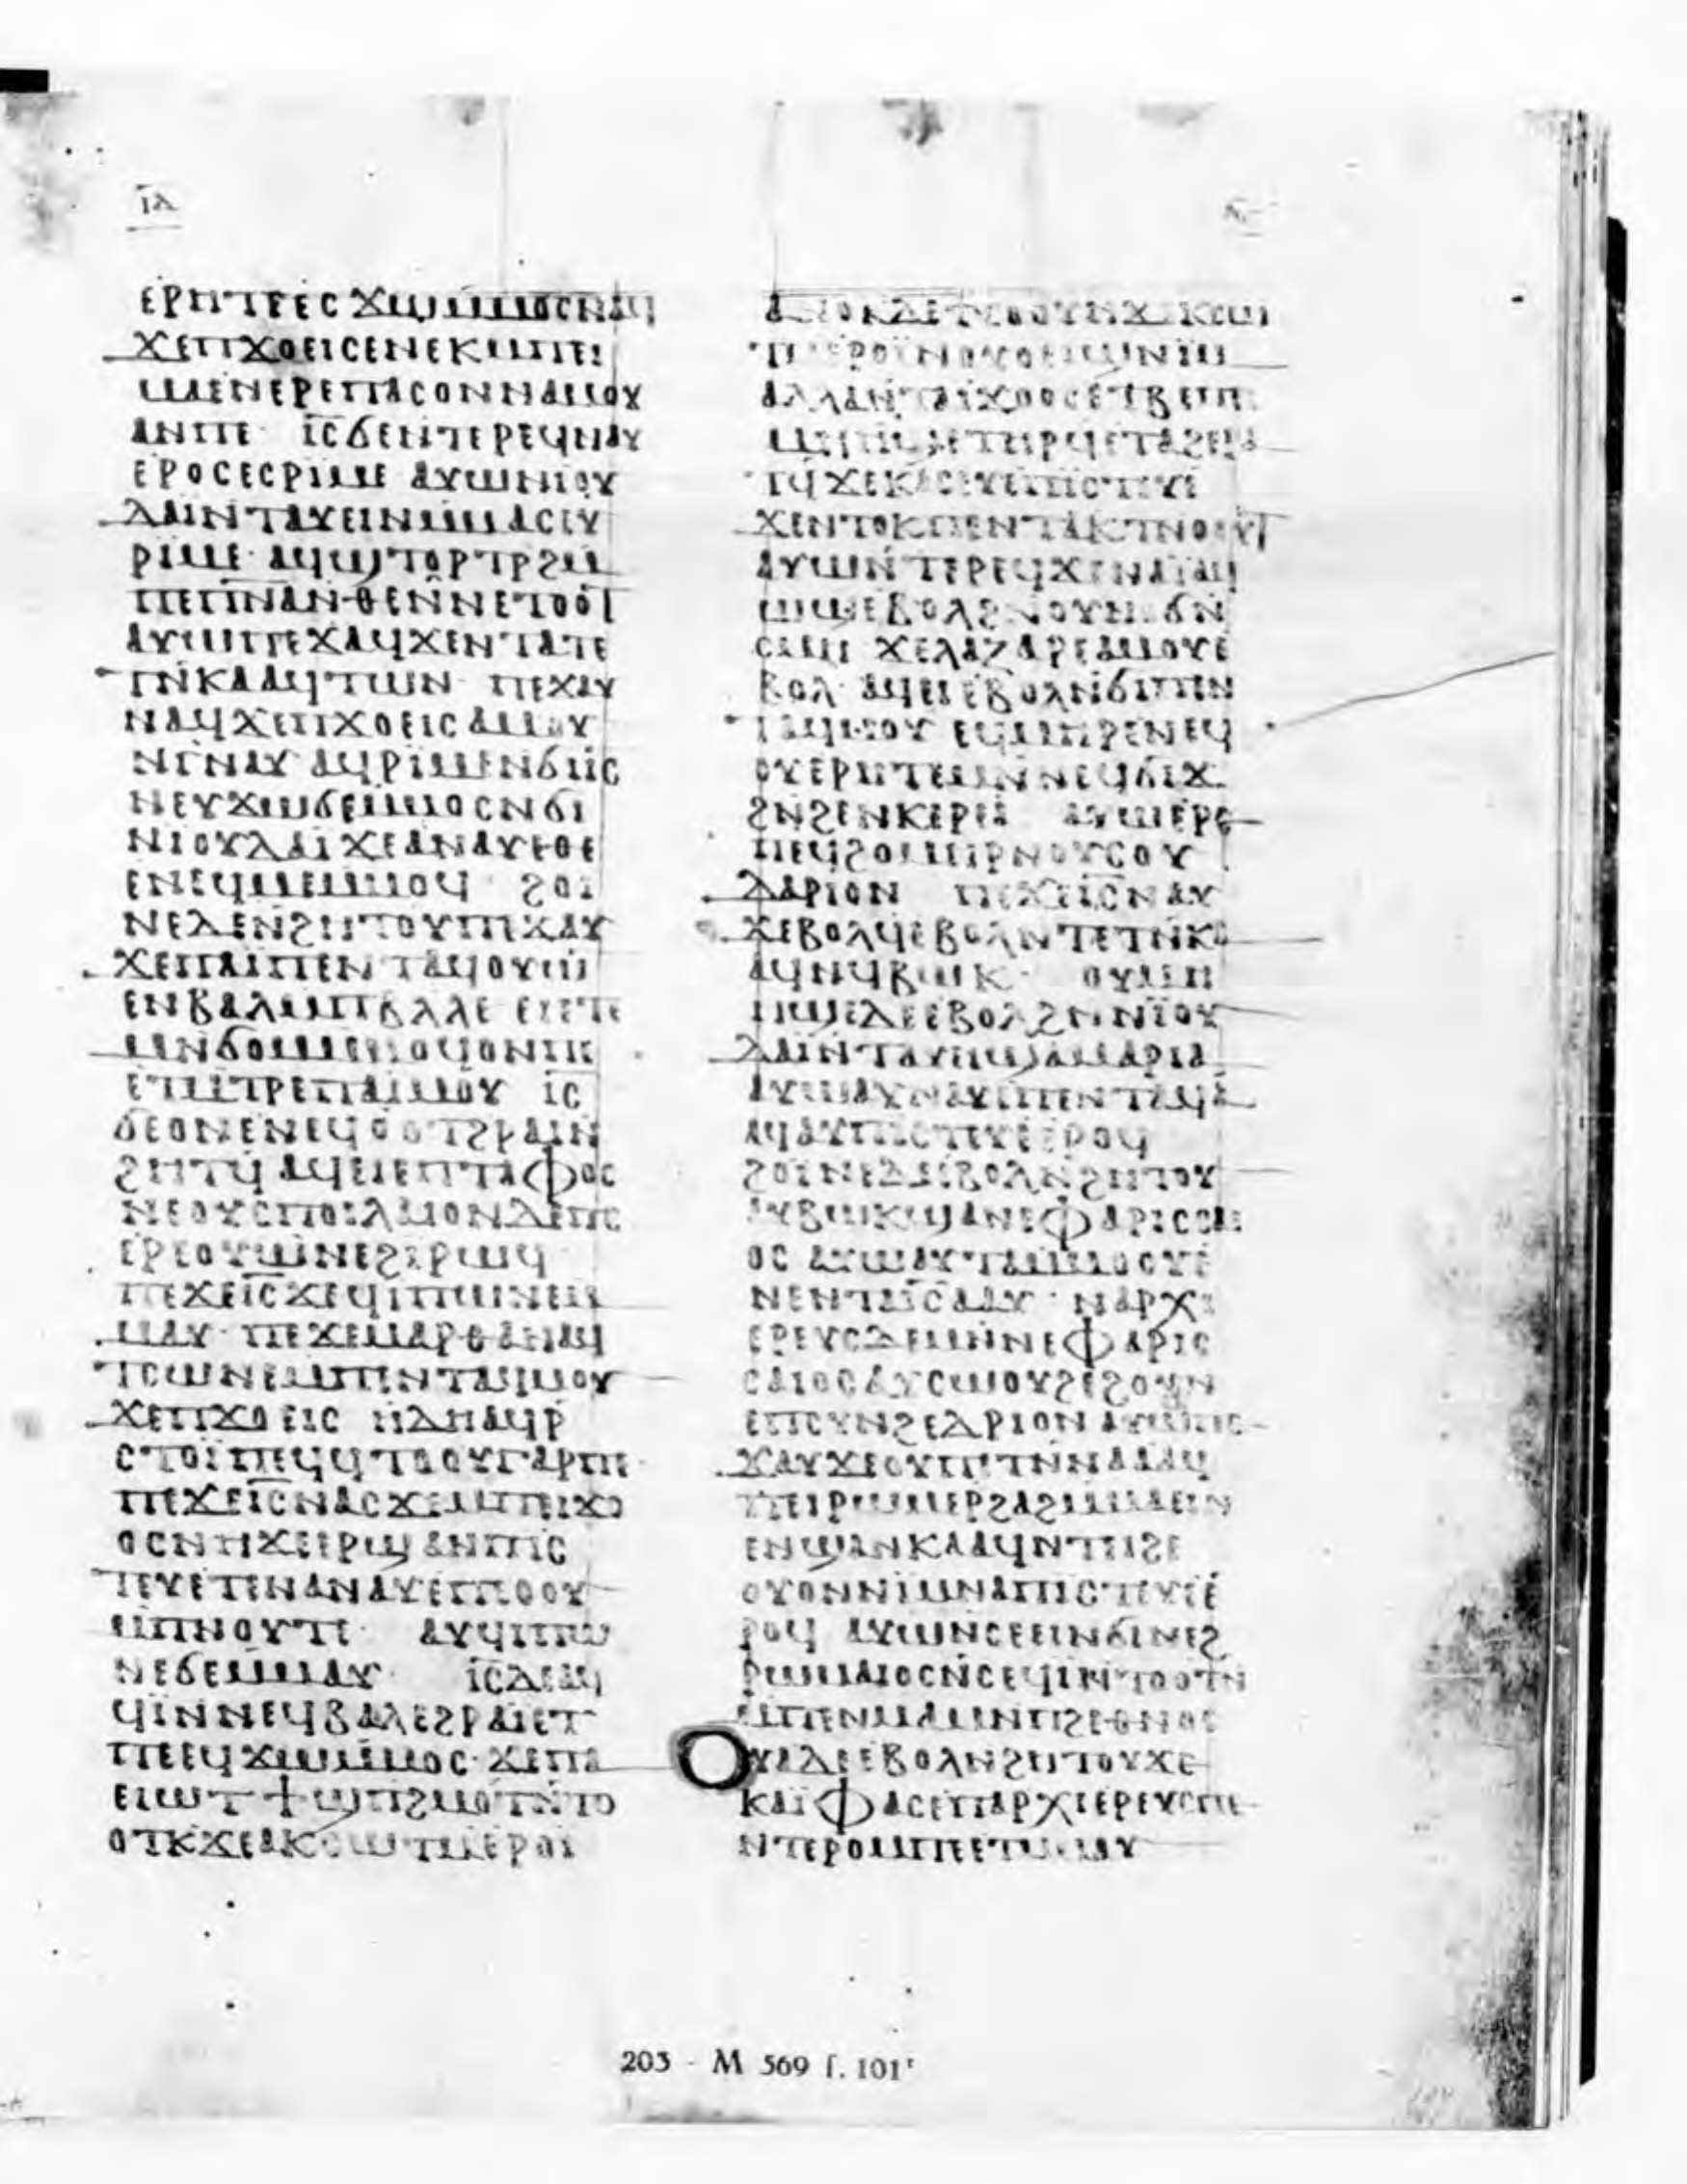 ⲓⲁ
ⲉⲣⲏⲧⲉⲉⲥϫⲱⲙⲙⲟⲥⲛⲁϥ
ϫⲉⲡϫⲟⲉⲓⲥⲉⲛⲉⲕⲙⲡⲉⲓ
ⲙⲁⲉⲛⲉⲣⲉⲡⲁⲥⲟⲛⲛⲁⲙⲟⲩ
ⲁⲛⲡⲉ· ⲓ̅ⲥ̅ϭⲉⲛⲧⲉⲣⲉϥⲛⲁⲩ
ⲉⲣⲟⲥⲉⲥⲣⲓⲙⲉ ⲁⲩⲱⲛⲓⲟⲩ
ⲇⲁⲓⲛⲧⲁⲩⲉⲓⲛⲙⲙⲁⲥⲉⲩ
ⲣⲓⲙⲉ· ⲁϥϣⲧⲟⲣⲧⲣϩⲙ
ⲡⲉⲡ̅ⲛ̅ⲁ̅ⲛⲑⲉⲛⲛⲉⲧϭⲟ̅ⲧ
ⲁⲩⲱⲡⲉϫⲁϥϫⲉⲛⲧⲁⲧⲉ
ⲧⲛⲕⲁⲁϥⲧⲱⲛ· ⲡⲉϫⲁⲩ
ⲛⲁϥϫⲉⲡϫⲟⲉⲓⲥⲁⲙⲟⲩ
ⲛⲅⲛⲁⲩ ⲁϥⲣⲓⲙⲉⲛϭⲓⲓ̅ⲥ̅
ⲛⲉⲩϫⲱϭⲉⲙⲙⲟⲥⲛϭⲓ
ⲛⲓⲟⲩⲇⲁⲓϫⲉⲁⲛⲁⲩⲉⲑⲉ
ⲉⲛⲉϥⲙⲉⲙⲙⲟϥ· ϩⲟⲓ
ⲛⲉⲇⲉⲛϩⲏⲧⲟⲩⲡⲉϫⲁⲩ
ϫⲉⲡⲁⲓⲡⲉⲛⲧⲁϥⲟⲩⲱ
ⲉⲛⲃⲁⲗⲙⲡⲃⲗⲗⲉ ⲉⲓⲉⲧⲉ
ⲙⲛϭⲟⲙⲙⲙⲟϥⲟⲛⲡⲉ
ⲉⲧⲙⲧⲣⲉⲡⲁⲓⲙⲟⲩ ⲓ̅ⲥ̅
ϭⲉⲟⲛⲉⲛⲉϥϭⲟⲧϩⲣⲁⲓⲛ
ϩⲏⲧϥ ⲁϥⲉⲓⲉⲡⲧⲁⲫⲟⲥ
ⲛⲉⲟⲩⲥⲡⲩⲗⲁⲓⲟⲛⲇⲉⲡⲉ
ⲉⲣⲉⲟⲩⲱⲛⲉϩⲓⲣⲱϥ
ⲡⲉϫⲉⲓ̅ⲥ̅ϫⲉϥⲓⲡⲱⲛⲉⲙ
ⲙⲁⲩ· ⲡⲉϫⲉⲙⲁⲣⲑⲁⲛⲁϥ
ⲧⲥⲱⲛⲉⲙⲡⲉⲛⲧⲁϥⲙⲟⲩ
ϫⲉⲡϫⲟⲉⲓⲥ ⲏⲇⲏⲁϥⲣ
ⲥⲧⲟⲓⲡⲉϥϥⲧⲟⲟⲩⲅⲁⲣⲡⲉ·
ⲡⲉϫⲉⲓ̅ⲥ̅ⲛⲁⲥϫⲉⲙⲡⲉⲓϫⲟ
ⲟⲥⲛⲏϫⲉⲉⲣϣⲁⲛⲡⲓⲥ
ⲧⲉⲩⲉⲧⲉⲛⲁⲛⲁⲩⲉⲡⲉⲟⲟⲩ
ⲙⲡⲛⲟⲩⲧⲉ· ⲁⲩϥⲓⲡⲱ
ⲛⲉϭⲉⲙⲙⲁⲩ· ⲓ̅ⲥ̅ⲇⲉⲁϥ
ϥⲓⲛⲛⲉϥⲃⲁⲗⲉϩⲣⲁⲓⲉⲧ
ⲡⲉⲉϥϫⲱⲙⲙⲟⲥ·ϫⲉⲡⲁ
ⲉⲓⲱⲧϯϣⲡϩⲙⲟⲧⲛⲧⲟ
ⲟⲧⲕϫⲉⲁⲕⲥⲱⲧⲙⲉⲣⲟⲓ
ⲁⲛⲟⲕⲇⲉϯⲥⲟⲟⲩⲛϫⲉⲕⲥⲱ
ⲧⲙⲉⲣⲟⲓⲛⲟⲩⲟⲉⲓϣⲛⲓⲙ
ⲁⲗⲗⲁⲛⲧⲁⲓϫⲟⲟⲥⲉⲧⲃⲉⲡⲙ
ⲙⲏⲏϣⲉⲧⲏⲣϥⲉⲧⲁϩⲉⲣⲁ
ⲧϥϫⲉⲕⲁⲥⲉⲩⲉⲡⲓⲥⲧⲉⲩⲉ
ϫⲉⲛⲧⲟⲕⲡⲉⲛⲧⲁⲕⲧⲛⲟⲟⲩⲧ
ⲁⲩⲱⲛⲧⲉⲣⲉϥϫⲉⲛⲁⲓⲁϥ
ⲱϣⲉⲃⲟⲗϩⲛⲟⲩⲛⲟϭⲛ
ⲥⲙⲏ ϫⲉⲗⲁⲍⲁⲣⲉⲁⲙⲟⲩⲉ
ⲃⲟⲗ· ⲁϥⲉⲓⲉⲃⲟⲗⲛϭⲓⲡⲉⲛ
ⲧⲁϥⲙⲟⲩ ⲉϥⲙⲏⲣⲉⲛⲉϥ
ⲟⲩⲉⲣⲏⲧⲉⲙⲛⲛⲉϥϭⲓϫ
ϩⲛϩⲉⲛⲕⲉⲣⲉⲁ ⲁⲩⲱⲉⲣⲉ
ⲡⲉϥϩⲟⲙⲏⲣⲛⲟⲩⲥⲟⲩ
ⲇⲁⲣⲓⲟⲛ ⲡⲉϫⲉⲓ̅ⲥ̅ⲛⲁⲩ
ϫⲉⲃⲟⲗϥⲉⲃⲟⲗⲛⲧⲉⲧⲛⲕⲁ
ⲁϥⲛϥⲃⲱⲕ· ⲟⲩⲙⲏ
ⲏϣⲉⲇⲉⲉⲃⲟⲗϩⲛⲛⲓⲟⲩ
ⲇⲁⲓⲛⲧⲁⲩⲉⲓϣⲁⲙⲁⲣⲓⲁ
ⲁⲩⲱⲁⲩⲛⲁⲩⲉⲡⲉⲛⲧⲁϥⲁ
ⲁϥⲁⲩⲡⲓⲥⲧⲉⲩⲉⲉⲣⲟϥ
ϩⲟⲓⲛⲉⲇⲉⲉⲃⲟⲗⲛϩⲏⲧⲟⲩ
ⲁⲩⲃⲱⲕϣⲁⲛⲉⲫⲁⲣⲓⲥⲥⲁⲓ
ⲟⲥ ⲁⲩⲱⲁⲩⲧⲁⲙⲟⲟⲩⲉ
ⲛⲉⲛⲧⲁⲓ̅ⲥ̅ⲁⲁⲩ· ⲛⲁⲣⲭⲓ
ⲉⲣⲉⲩⲥⲇⲉⲙⲛⲛⲉⲫⲁⲣⲓⲥ
ⲥⲁⲓⲟⲥⲁⲩⲥⲱⲟⲩϩⲉϩⲟⲩⲛ
ⲉⲡⲥⲩⲛϩⲉⲇⲣⲓⲟⲛⲁⲩⲱⲡⲉ
ϫⲁⲩϫⲉⲟⲩⲡⲉⲧⲛⲛⲁⲁⲁϥ
ⲡⲉⲓⲣⲱⲙⲉⲣϩⲁϩⲙⲙⲁⲉⲓⲛ
ⲉⲛϣⲁⲛⲕⲁⲁϥⲛⲧⲉⲓϩⲉ
ⲟⲩⲟⲛⲛⲓⲙⲛⲁⲡⲓⲥⲧⲉⲩⲉⲉ
ⲣⲟϥ ⲁⲩⲱⲛⲥⲉⲉⲓⲛϭⲓⲛⲉϩ
ⲣⲱⲙⲁⲓⲟⲥⲛⲥⲉϥⲓⲛⲧⲟⲟⲧⲛ
ⲙⲡⲉⲛⲙⲁⲙⲛⲡϩⲉⲑⲛⲟⲥ
ⲟⲩⲁⲇⲉⲉⲃⲟⲗⲛϩⲏⲧⲟⲩϫⲉ
ⲕⲁⲓⲫⲁⲥⲉⲡⲁⲣⲭⲓⲉⲣⲉⲩⲥⲡⲉ
ⲛⲧⲉⲣⲟⲙⲡⲉⲉⲧⲙⲙⲁⲩ
203 - M 569 f. 101ʳ